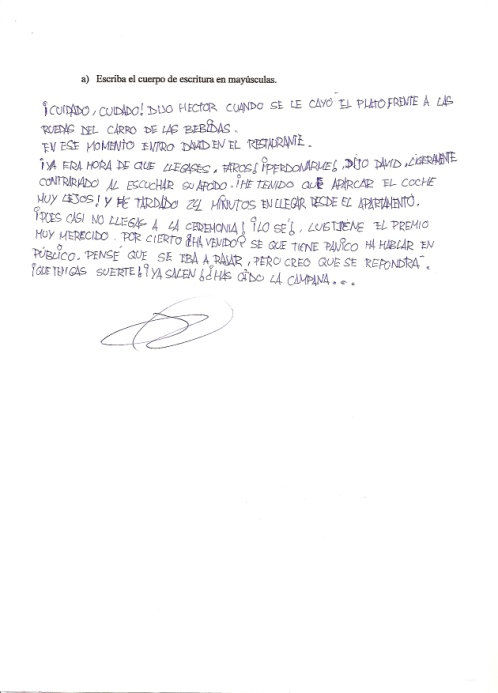 a) Escriba el cuerpo de escritura en mayúsculas.
¡CUIDADO, CUIDADO! DIJO HECTOR CUANDO SE LE CAYÓ EL PLATO FRENTE A LAS
RUEDAS DEL CARRO DE LAS BEBIDAS.
EN ESE MOMENTO ENTRO DAVID EN EL RESTAURANTE.
¡YA ERA HORA DE QUE LLEGASES, FAROS! ¡PERDONARME!, DIJO DAVID, LIGERAMENTE
CONTRARIADO AL ESCUCHAR SU APODO. ¡HE TENIDO QUE APARCAR EL COCHE
MUY LEJOS! Y HE TARDADO 21 MINUTOS EN LLEGAR DESDE EL APARTAMENTO.
¡PUES CASI NO LLEGAS A LA CEREMONIA! ¡LO SÉ!, LUIS TIENE EL PREMIO
MUY MERECIDO. POR CIERTO ¿HA VENIDO? SE QUE TIENE PANICO HA HABLAR EN
PÚBLICO. PENSÉ QUE SE IBA A RAJAR, PERO CREO QUE SE REPONDRÁ.
¡QUE TENGAS SUERTE! ¡YA SALEN! ¿HAS OÍDO LA CAMPANA...